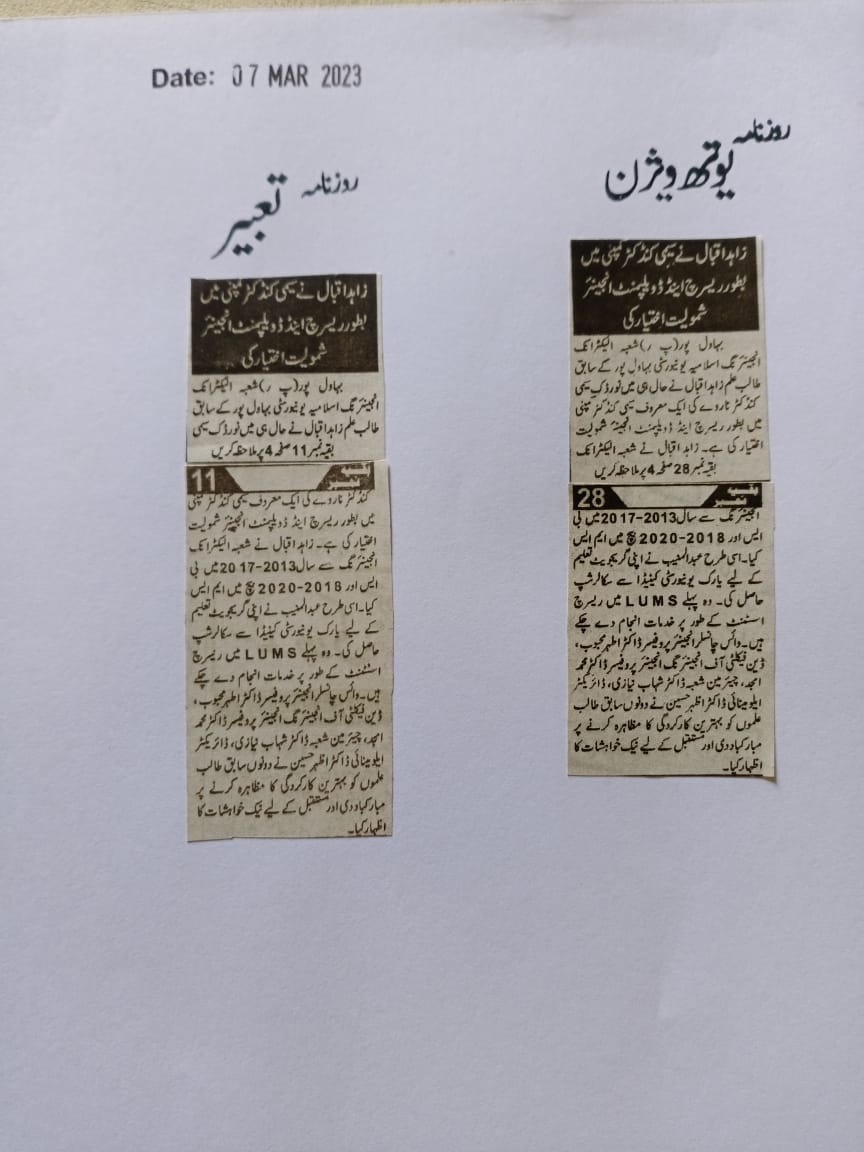 Date: 07 MAR 2023
روزنامہ یوتھ ویژن
زاہد اقبال نے سیمی کنڈکٹر کمپنی میں
بطور ریسرچ اینڈ ڈویلپمنٹ انجینئر
شمولیت اختیار کی
بہاول پور(پ ر)شعبہ الیکٹرانک
انجینئرنگ اسلامیہ یونیورسٹی بہاول پور کے سابق
طالب علم زاہد اقبال نے حال ہی میں نورڈک سیمی
کنڈکٹر ناروے کی ایک معروف سیمی کنڈکٹر کمپنی
میں بطور ریسرچ اینڈ ڈویلپمنٹ انجینئر شمولیت
اختیار کی ہے۔ زاہد اقبال نے شعبہ الیکٹرانک
بقیہ نمبر 28 صفحہ 4 پر ملاحظہ کریں
بقیہ نمبر 28
انجینئرنگ سے سال 2013-2017 میں بی
ایس اور 2018-2020 بیچ میں ایم ایس
کیا۔اسی طرح عبدالمعیب نے اپنی گریجویٹ تعلیم
کے لیے یارک یونیورسٹی کینیڈا سے سکالرشپ
حاصل کی۔ وہ پہلے LUMS میں ریسرچ
اسسٹنٹ کے طور پر خدمات انجام دے چکے
ہیں۔وائس چانسلر انجینئر پروفیسر ڈاکٹر اطہر محبوب،
ڈین فیکلٹی آف انجینئرنگ انجینئر پروفیسر ڈاکٹر محمد
امجد، چیئرمین شعبہ ڈاکٹر شہاب نیازی، ڈائریکٹر
ایلومینائی ڈاکٹر اظہر حسین نے دونوں سابق طالب
علموں کو بہترین کارکردگی کا مظاہرہ کرنے پر
مبارکباد دی اور مستقبل کے لیے نیک خواہشات کا
اظہار کیا۔
روزنامہ تعبیر
زاہد اقبال نے سیمی کنڈکٹر کمپنی میں
بطور ریسرچ اینڈ ڈویلپمنٹ انجینئر
شمولیت اختیار کی
بہاول پور(پ ر)شعبہ الیکٹرانک
انجینئرنگ اسلامیہ یونیورسٹی بہاول پور کے سابق
طالب علم زاہد اقبال نے حال ہی میں نورڈک سیمی
بقیہ نمبر 11 صفحہ 4 پر ملاحظہ کریں
بقیہ نمبر 11
کنڈکٹر ناروے کی ایک معروف سیمی کنڈکٹر کمپنی
میں بطور ریسرچ اینڈ ڈویلپمنٹ انجینئر شمولیت
اختیار کی ہے۔ زاہد اقبال نے شعبہ الیکٹرانک
انجینئرنگ سے سال 2013-2017 میں بی
ایس اور 2018-2020 بیچ میں ایم ایس
کیا۔اسی طرح عبدالمعیب نے اپنی گریجویٹ تعلیم
کے لیے یارک یونیورسٹی کینیڈا سے سکالرشپ
حاصل کی۔ وہ پہلے LUMS میں ریسرچ
اسسٹنٹ کے طور پر خدمات انجام دے چکے
ہیں۔وائس چانسلر انجینئر پروفیسر ڈاکٹر اطہر محبوب،
ڈین فیکلٹی آف انجینئرنگ انجینئر پروفیسر ڈاکٹر محمد
امجد، چیئرمین شعبہ ڈاکٹر شہاب نیازی، ڈائریکٹر
ایلومینائی ڈاکٹر اظہر حسین نے دونوں سابق طالب
علموں کو بہترین کارکردگی کا مظاہرہ کرنے پر
مبارکباد دی اور مستقبل کے لیے نیک خواہشات کا
اظہار کیا۔